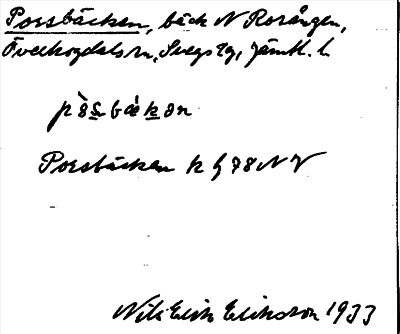 Porsbäcken, bäck N Rorången,
Överhogdals sn, Svegs tg, Jämtl. l.
Porsbäcken k h 78 NV
Nils Erik Eriksson 1933